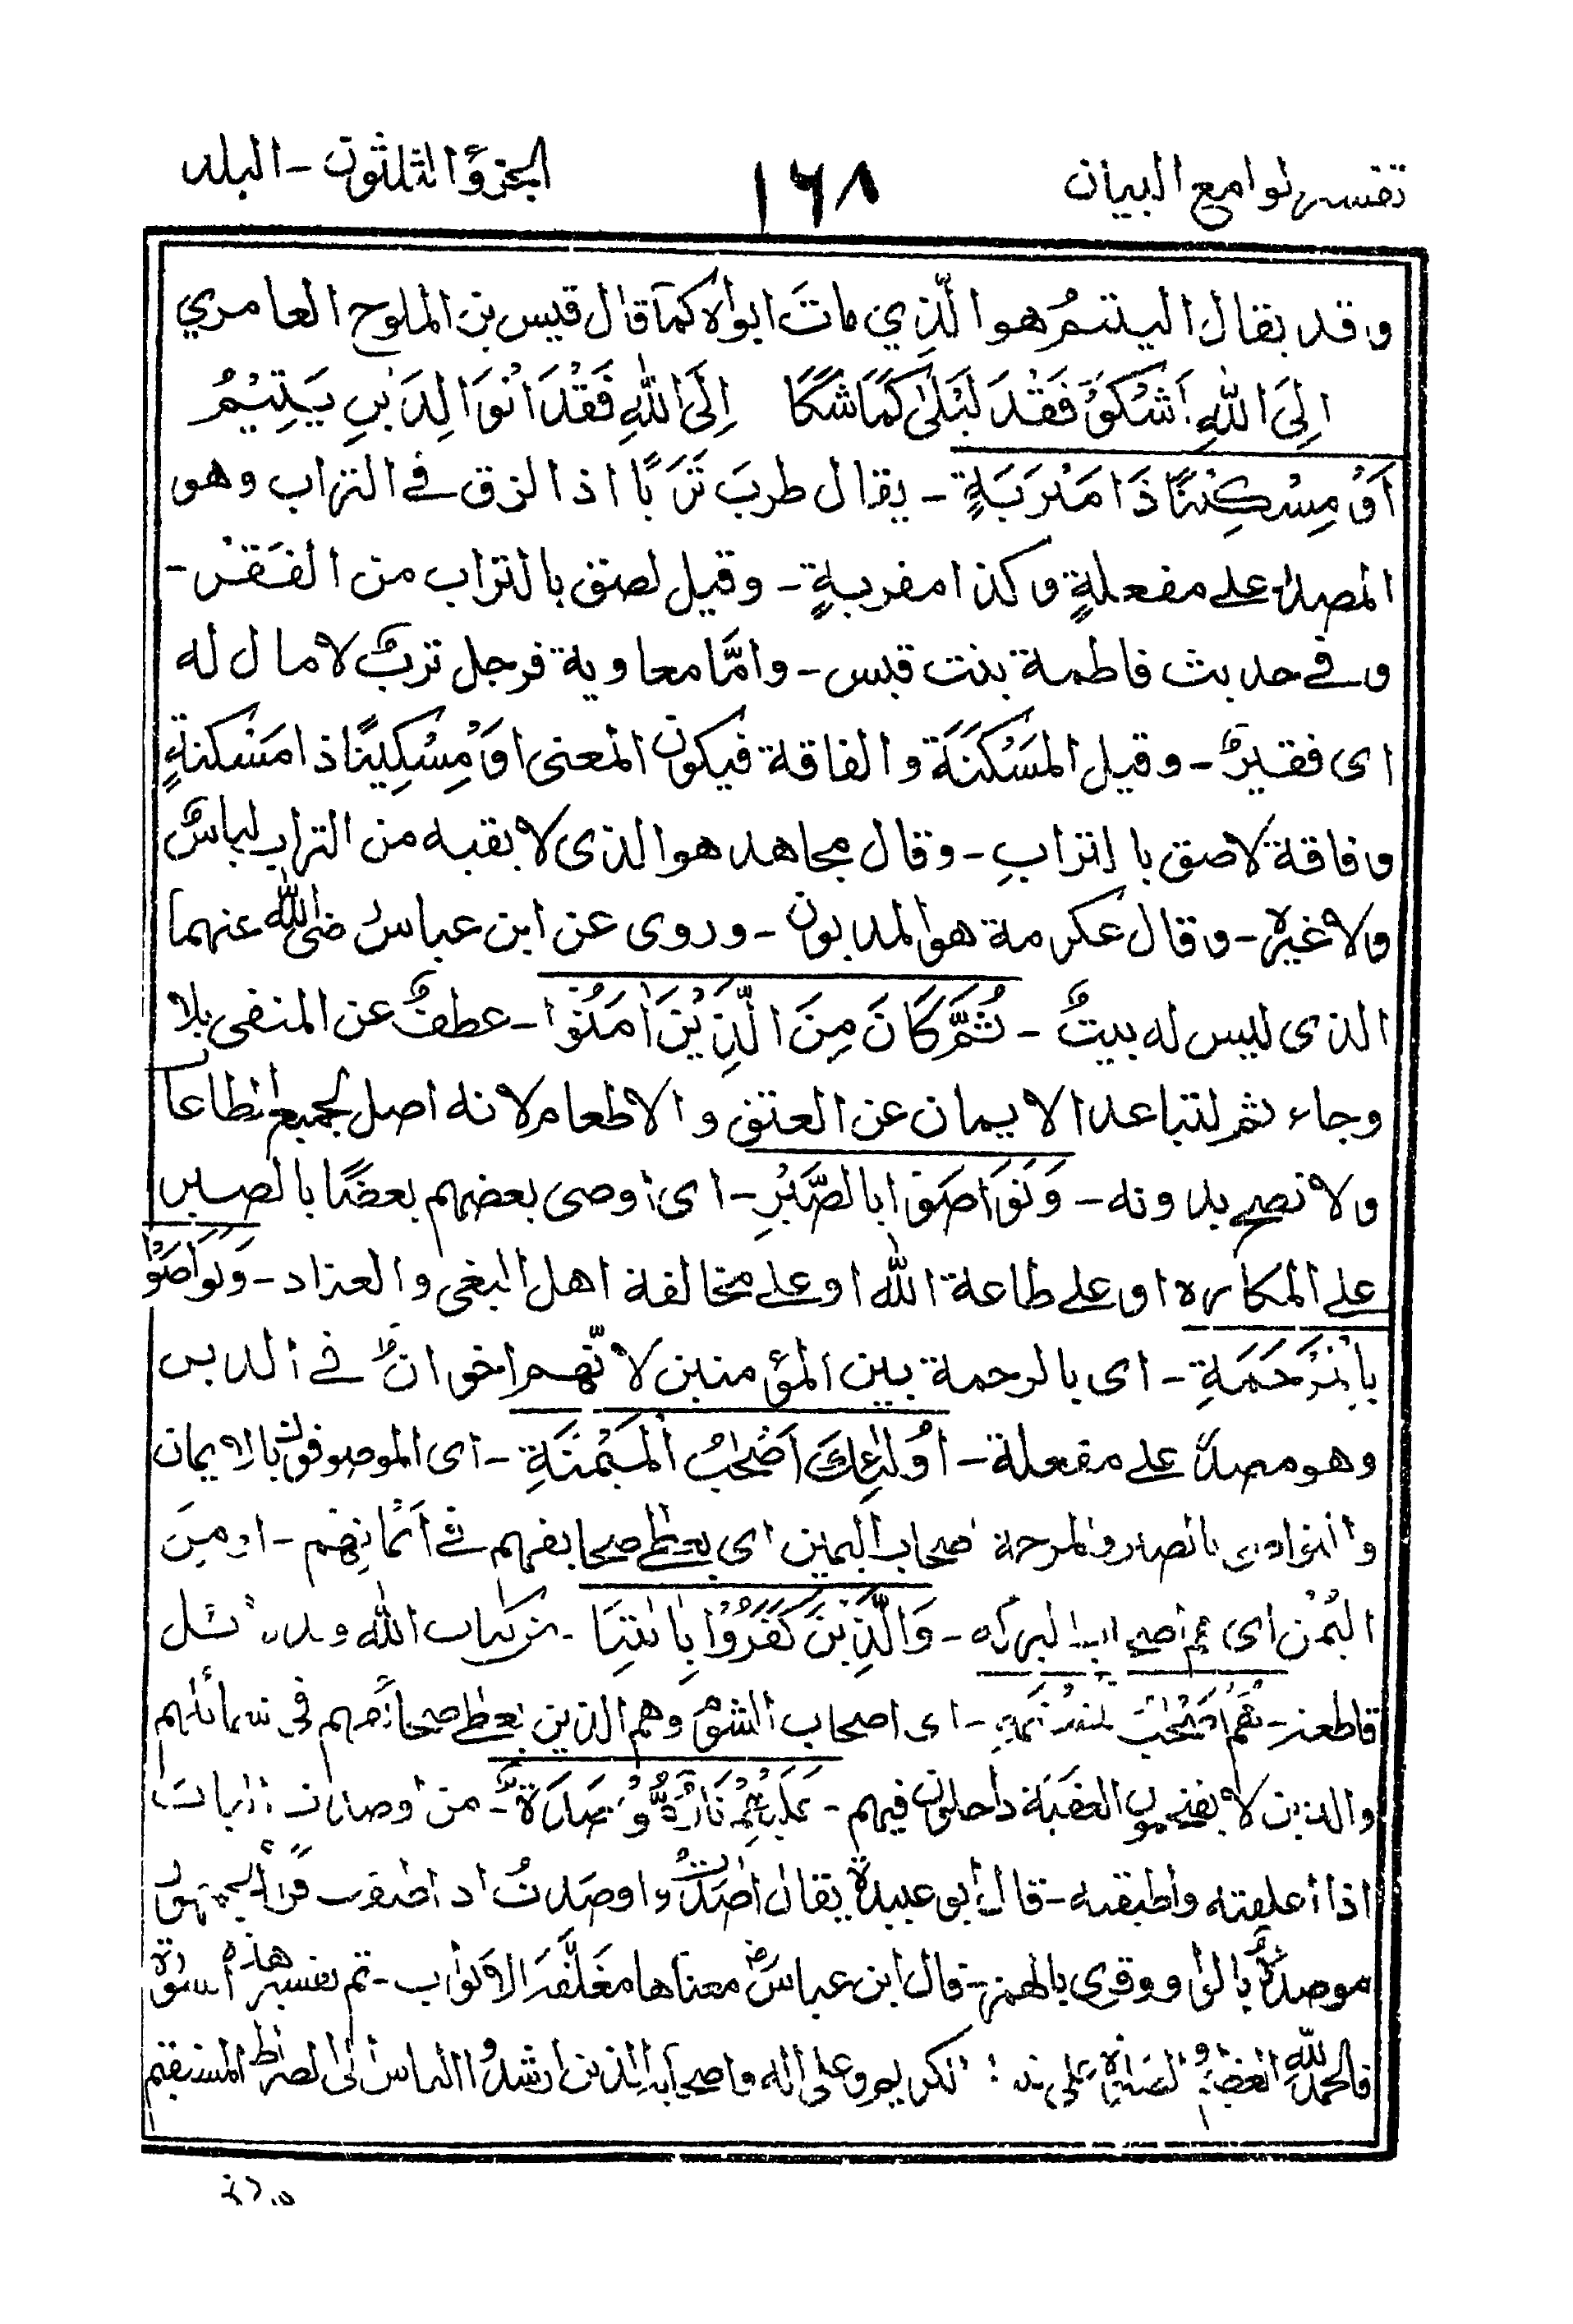 تفسير لوامع البيان
١٦٨
الجزؤ الثلثون - البلد
وقد يقال اليتيمُ هو الّذي ماتَ ابواه كمآ قال قيس بن الملوح العامري
اِلَى اللهِ اَشْكُوْ فَقْدَ لَيْلٰى كَمَا شَكَا اِلَى اللهِ فَقْدَ الْوَالِدَيْنِ يَتِيْمُ
اَوْ مِسْكِيْنًا ذَا مَتْرَبَةٍ - يقال طربَ تَرَبًا اذا لزق فے التراب وهو
المصدر علے مفعلةٍ وكذا مقربةٍ - وقيل لصق بالتراب من الفَقْر -
وفے حديث فاطمة بنت قيس - وامَّا معاوية فرجل تربٌ لا مال له
اى فقيرٌ - وقيل المَسْكَنَة والفاقة فيكون المعنى اَوْ مِسْكِينًا ذا مَسْكنةٍ
وفاقة لاصق بالترابِ - وقال مجاهد هو الذى لا يقيه من التراب لباسٌ
ولا غيره - وقال عكرمة هو المديون - وروى عن ابن عباس رضى الله عنهما
الذى ليس له بيتٌ - ثُمَّ كَانَ مِنَ الَّذِيْنَ اٰمَنُوْا - عطفٌ عن المنفى بلا
وجاء ثم لتباعد الايمان عن العتق والاطعام لانه اصل لجميع الطاعا
ولا تصح بدونه - وَتَوَاصَوْا بِالصَّبْرِ - اى اوصى بعضهم بعضًا بالصبر
علے المكاره او علے طاعة الله او علے مخالفة اهل البغى والعناد - وَتَوَاصَوْا
بِالْمَرْحَمَةِ - اى بالرحمة بين المؤمنين لانّهم اخوانٌ فے الدين
وهو مصدرٌ علے مفعلة - اُولٰٓئِكَ اَصْحٰبُ الْمَيْمَنَةِ - اى الموصوفون بالايمان
والتواصى بالصبر والمرحمة اصحاب اليمين اى يعطے صحايفهم فے اَيْمَانِهِم - او مِنَ
اليُمْن اى هم اصحاب البركة - وَالَّذِيْنَ كَفَرُوْا بِاٰيٰتِنَا - من كتاب الله ودلائل
قاطعة - هُمْ اَصْحٰبُ الْمَشْئَمَةِ - اى اصحاب الشؤم وهم الذين يعطے صحائفهم فى شمائلهم
والذين لا يقتحمون العقبَة داخلون فيهم - عَلَيْهِمْ نَارٌ مُّؤْصَدَةٌ - من اوصدت الباب
اذا اغلقته واطبقته - قال ابو عبيدة يقال اٰصدتُ واوصدتُ اذا اطبقت قرأ الجمهور
موصدةٌ بالواو وقرى بالهمزة - قال ابن عباسؓ معناها مغلّقة الابواب - تم تفسير هذه السورة
فالحمد لله العظيم والصلوة على نبيه الكريم وعلى اله واصحابه الذين ارشدوا الناس الى الصراط المستقيم